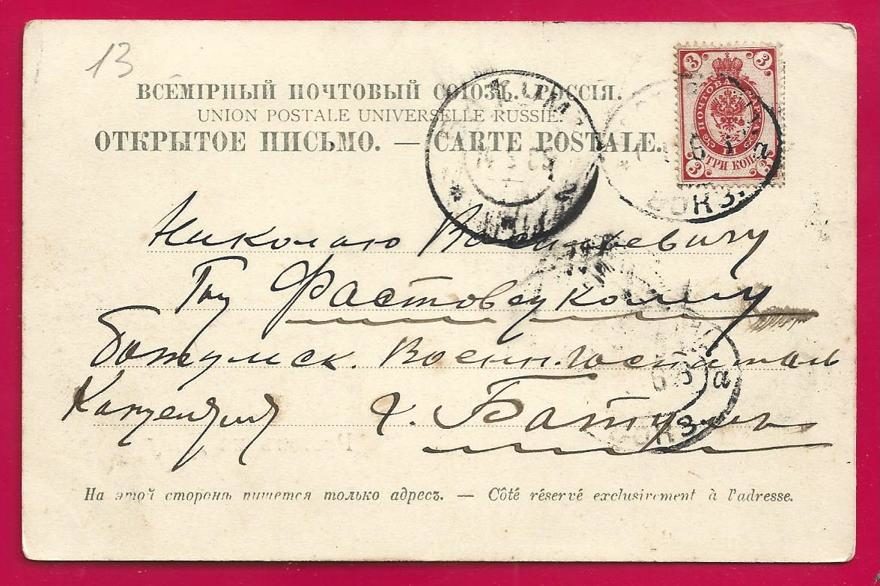 13
ВСЕМІРНЫЙ ПОЧТОВЫЙ СОЮЗЪ. РОССІЯ.
UNION POSTALE UNIVERSELLE RUSSIE.
ОТКРЫТОЕ ПИСЬМО. — CARTE POSTALE.
3 3
ПОЧТОВАЯ
3 ТРИ КОП. 3
ВОКЗ.
а
Николаю Васильевичу
Гну Фастовецкому
Батумск. Военн. Госпиталь
Канцелярия г. Батумъ
ВОКЗ.
а
На этой сторонѣ пишется только адресъ. — Côté réservé exclusivement à l'adresse.